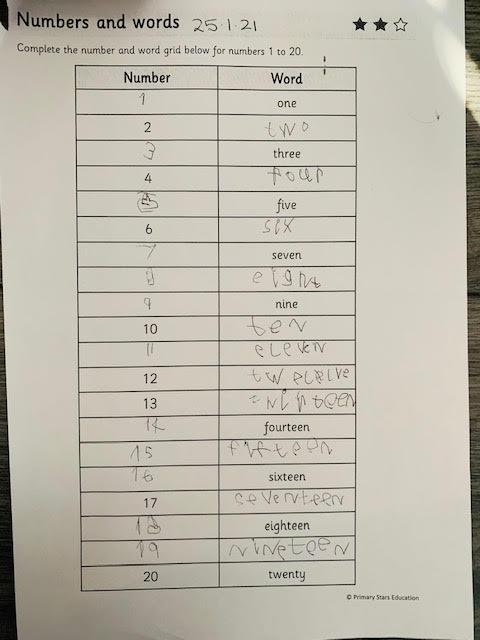 Numbers and words 25.1.21
Complete the number and word grid below for numbers 1 to 20.
Number Word
1 one
2 two
3 three
4 four
5 five
6 six
7 seven
8 eight
9 nine
10 ten
11 eleven
12
13
14 fourteen
15 fifteen
16 sixteen
17 seventeen
18 eighteen
19 nineteen
20 twenty
© Primary Stars Education